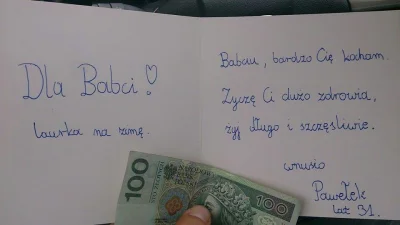 Dla Babci!♡
laurka na zimę.
Babciu, bardzo Cię kocham.
Życzę Ci dużo zdrowia,
żyj długo i szczęśliwie.
wnusio
Pawełek
lat 31.
100
100